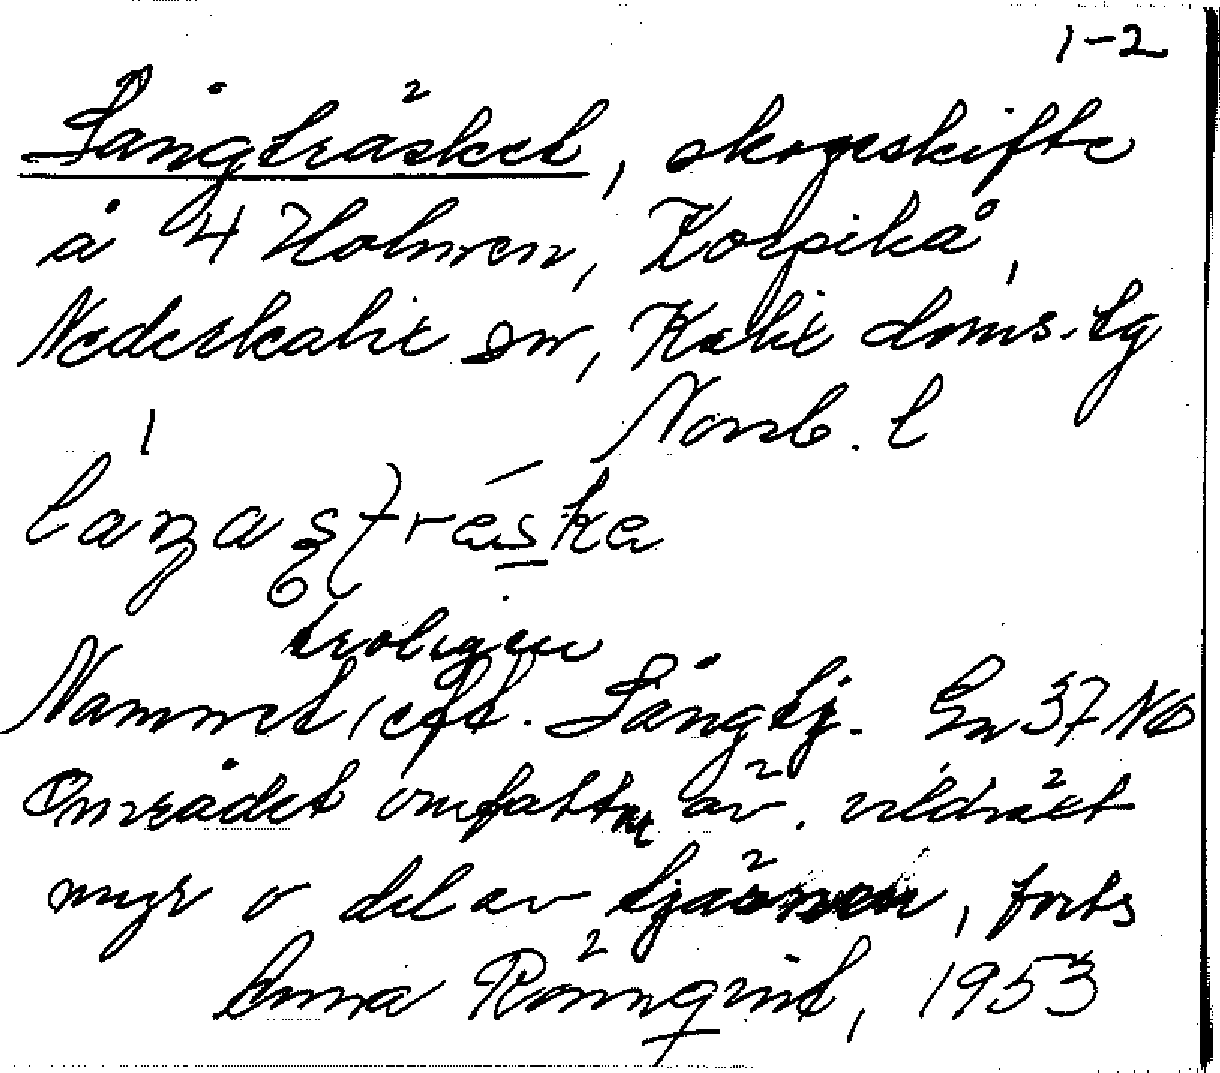 1-2
Långträsket, skogsskifte
å 4 Holmen, Korpikå,
Nederkalix sn, Kalix doms.lg
Norrb. l
troligen
Namnet, eft. Långtj. En 37 NO
Området omfattar äv. vildväxt
myr o del av tjärnen, forts
Anna Rönnqvist, 1953